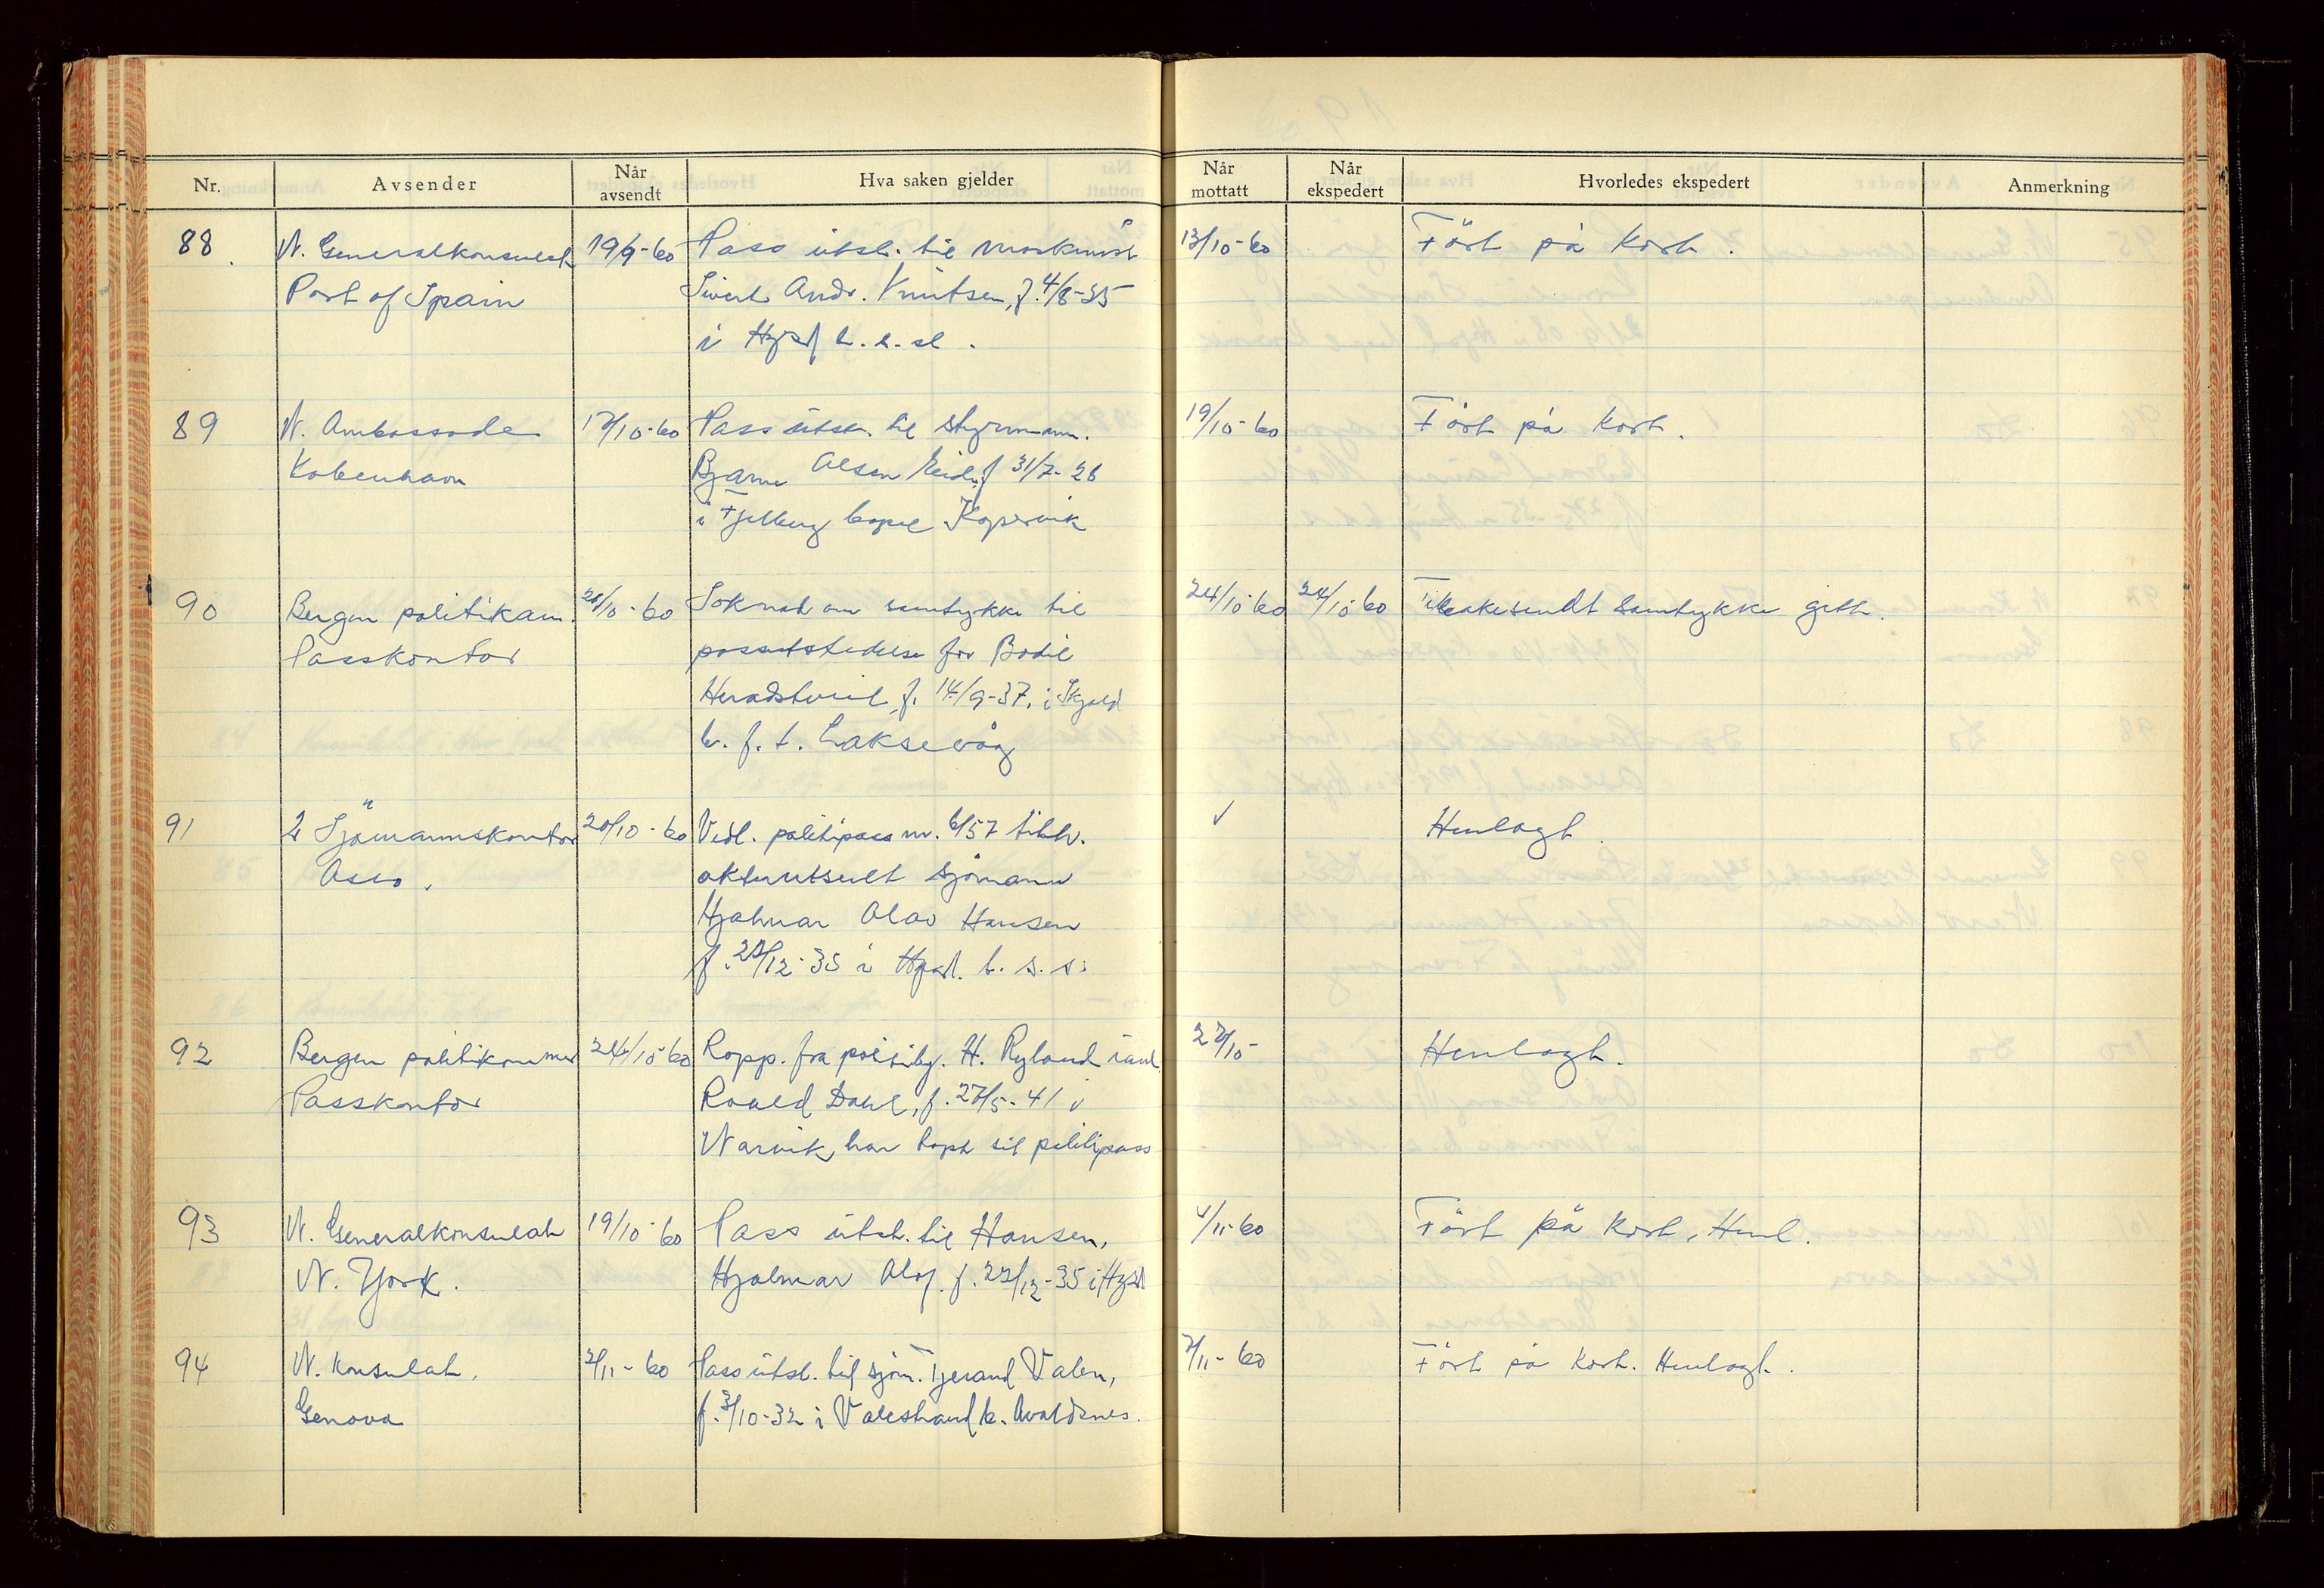 Nr. Avsender Når avsendt Hva saken gjelder Når mottatt Når ekspedert Hvorledes ekspedert Anmerkning
88. N. Generalkonsulat 19/9-60 Pass utst. til 13/10-60 Ført på kort.
Port of Spain Sivert Andr. Knutsen, f. 4/8-35
i Hgsd b. s. st.
89 N. Ambassade 17/10-60 Pass utst. til styrmann. 19/10-60 Ført på kort.
København Bjarne Olsen Eide, f 31/7-26
i Fjelberg bopel Kopervik
90 Bergen politikam. 20/10-60 Søknad om samtykke til 24/10-60 24/10-60 Tilbakesendt samtykke gitt.
Passkontor passutstedelse for Bodil
Heradstveit, f. 14/9-37. i Skjold
b. f. t. Laksevåg
91 Sjømannskontor 20/10-60 Vedl. politipass nr. 6/57 tilh. ✓ Henlagt.
Oslo. akterutseilt sjømann
Hjalmar Olav Hansen
f. 22/12-35 i Hgsd. b. s. s.
92 Bergen politikammer 24/10-60 Rapp. fra H. Ryland 27/10- Henlagt.
Passkontor Roald Dahl, f. 27/5-41 i
Narvik, har tapt sit politipass
93 N. Generalkonsulat 19/10-60 Pass utst. til Hansen, 4/11-60 Ført på kort, Henl.
N. York. Hjalmar Olaf. f. 22/12-35 i Hgsd
94 N. Konsulat. 2/11-60 Pass utst. til sjøm. Tjerand Valen, 7/11-60 Ført på kort. Henlagt.
Genova f. 3/10-32 i Valestrand b. Avaldsnes.